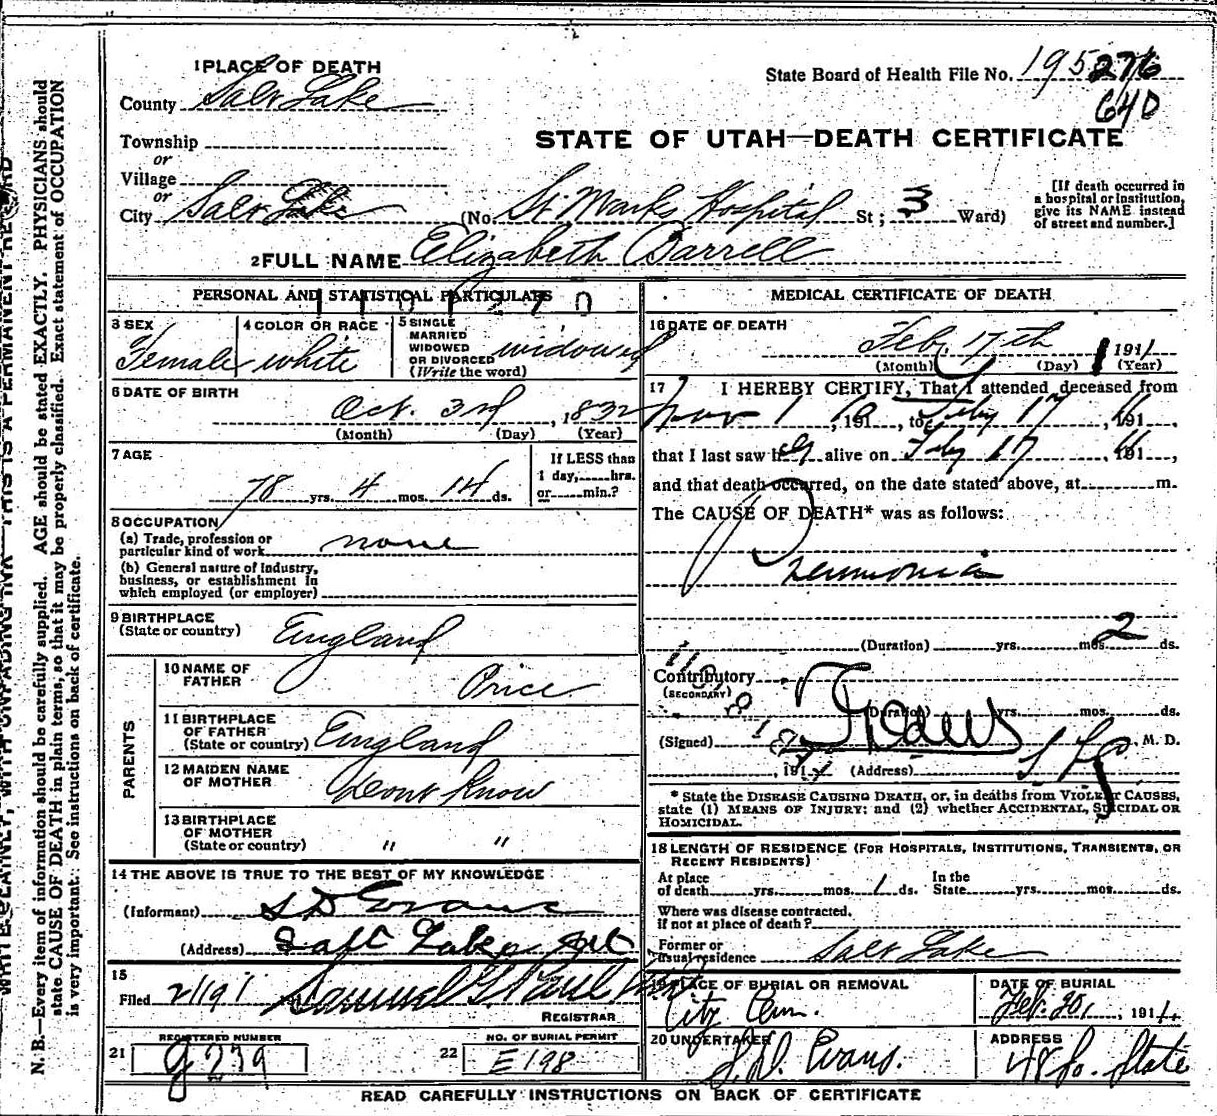 1 PLACE OF DEATH
County Salt Lake
State Board of Health File No. 195 276
640
STATE OF UTAH—DEATH CERTIFICATE
Township
or
Village
or
City Salt Lake (No. St Marks Hospital St; 3 Ward)
[If death occurred in a hospital or institution, give its NAME instead of street and number.]
2 FULL NAME Elizabeth Barrell
PERSONAL AND STATISTICAL PARTICULARS
3 SEX
Female
4 COLOR OR RACE
white
5 SINGLE
MARRIED
WIDOWED
OR DIVORCED
(Write the word)
widowed
6 DATE OF BIRTH
Oct. 3rd, 1832
(Month) (Day) (Year)
7 AGE
78 yrs. 4 mos. 14 ds.
If LESS than
1 day, hrs.
or min.?
8 OCCUPATION
(a) Trade, profession or
particular kind of work none
(b) General nature of industry,
business, or establishment in
which employed (or employer)
9 BIRTHPLACE
(State or country) England
PARENTS
10 NAME OF
FATHER Price
11 BIRTHPLACE
OF FATHER
(State or country) England
12 MAIDEN NAME
OF MOTHER Dont Know
13 BIRTHPLACE
OF MOTHER
(State or country) " "
14 THE ABOVE IS TRUE TO THE BEST OF MY KNOWLEDGE
(Informant) S D Evans
(Address) Salt Lake, Ut
15
Filed 2/19 1 191 Samuel G. Paul
REGISTRAR
REGISTERED NUMBER
21 g 239
NO. OF BURIAL PERMIT
22 E 198
MEDICAL CERTIFICATE OF DEATH
16 DATE OF DEATH
Feb. 17th 1911
(Month) (Day) (Year)
17 I HEREBY CERTIFY, That I attended deceased from
Nov 1, 1910, to Feby 17, 1911,
that I last saw her alive on Feby 17, 1911,
and that death occurred, on the date stated above, at m.
The CAUSE OF DEATH* was as follows:
Pneumonia
(Duration) yrs. mos. 2 ds.
Contributory
(SECONDARY)
(Duration) yrs. mos. ds.
(Signed) M. D.
, 191 (Address) S L C
* State the DISEASE CAUSING DEATH, or, in deaths from VIOLENT CAUSES,
state (1) MEANS OF INJURY; and (2) whether ACCIDENTAL, SUICIDAL OR
HOMICIDAL.
18 LENGTH OF RESIDENCE (FOR HOSPITALS, INSTITUTIONS, TRANSIENTS, OR
RECENT RESIDENTS)
At place
of death yrs. mos. 1 ds.
In the
State yrs. mos. ds.
Where was disease contracted,
if not at place of death?
Former or
usual residence Salt Lake
19 PLACE OF BURIAL OR REMOVAL
City Cem.
DATE OF BURIAL
Feb. 20, 1911
20 UNDERTAKER
S. D. Evans.
ADDRESS
48 So. State
READ CAREFULLY INSTRUCTIONS ON BACK OF CERTIFICATE
WRITE PLAINLY, WITH UNFADING INK—THIS IS A PERMANENT RECORD
N. B.—Every item of information should be carefully supplied. AGE should be stated EXACTLY. PHYSICIANS should
state CAUSE OF DEATH in plain terms, so that it may be properly classified. Exact statement of OCCUPATION
is very important. See instructions on back of certificate.